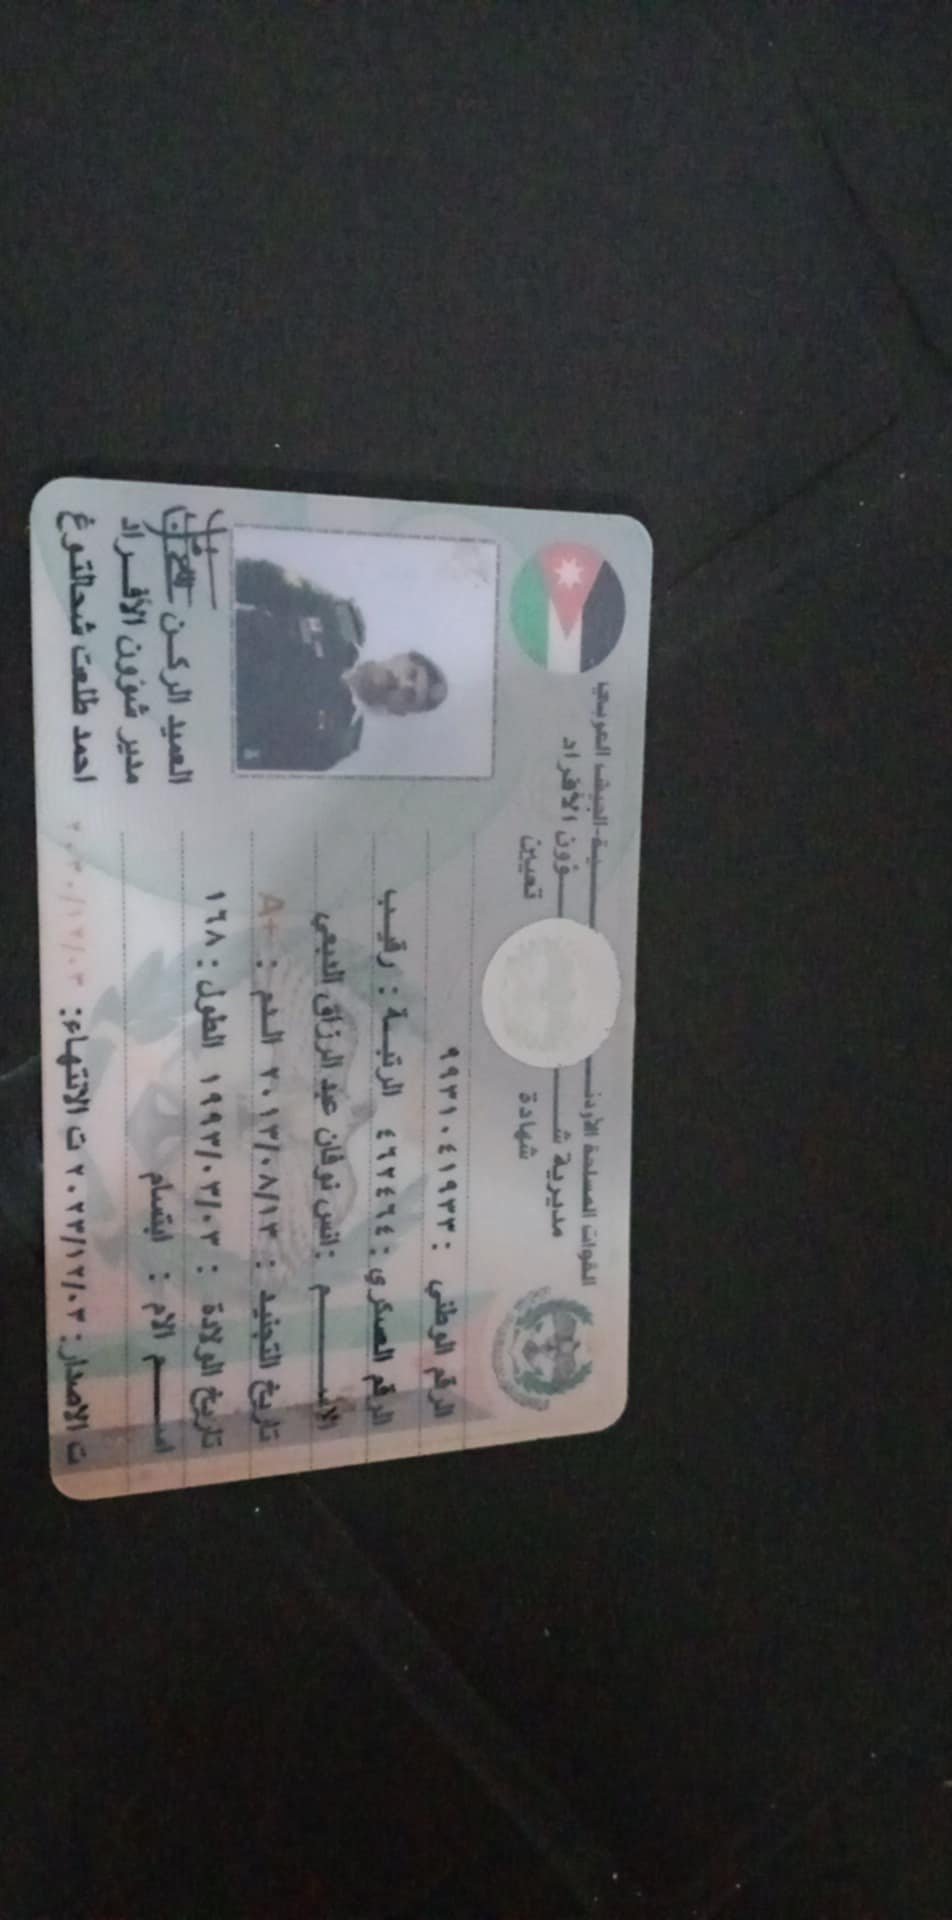 القوات المسلحة الأردنــــية-الجيش العربي
مديرية شــــؤون الأفراد
شهادة تعيين
الرقم الوطني : ٩٩٣١٠٤١٩٣٣
الرقم العسكري : ٤٦٢٤٦٤ الرتبــة : رقيب
الاســـــم : انس نوفان عبد الرزاق النبعي
تاريخ التجنيد : ٢٠١٣/٠٨/١٣ الدم : A+
تاريخ الولادة : ١٩٩٣/٠٣/٠٣ الطول : ١٦٨
اســـم الام : ابتسام
ت الاصدار: ٢٠٢٣/١٢/٠٣ ت الانتهاء: ٢٠٣٠/١٢/٠٣
العميد الركــن
مدير شؤون الأفــراد
احمد طلعت شحالتوغ